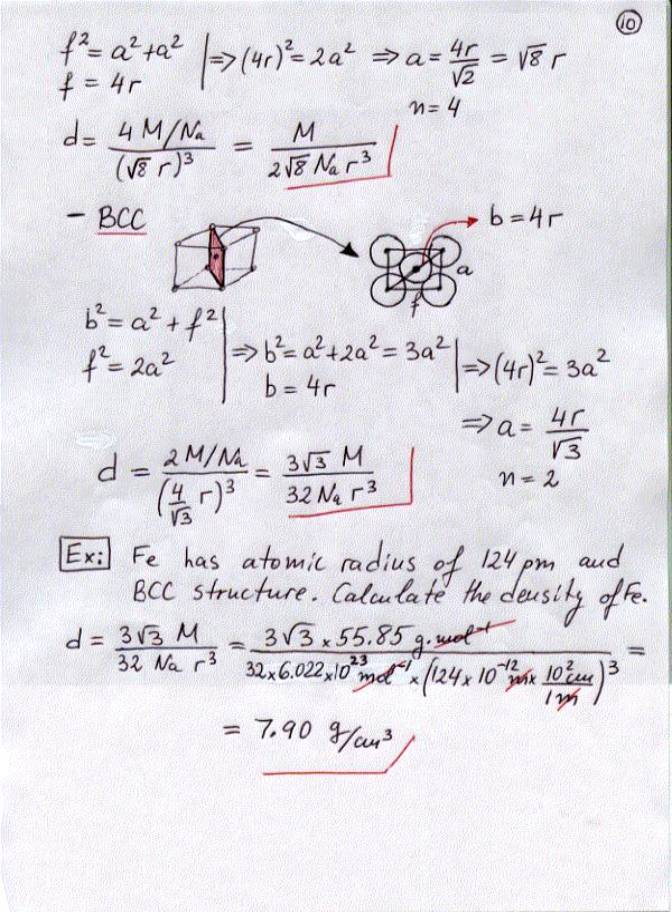 10
f² = a² + a² | ⇒ (4r)² = 2a² ⇒ a = 4r/√2 = √8 r
f = 4r
n = 4
d = (4 M/Na)/(√8 r)³ = M/(2√8 Na r³)
- BCC
b = 4r
a
f
b² = a² + f² |
f² = 2a² | ⇒ b² = a² + 2a² = 3a² | ⇒ (4r)² = 3a²
b = 4r
⇒ a = 4r/√3
n = 2
d = (2 M/Na)/(4/√3 r)³ = (3√3 M)/(32 Na r³)
Ex: Fe has atomic radius of 124 pm and
BCC structure. Calculate the density of Fe.
d = (3√3 M)/(32 Na r³) = (3√3 × 55.85 g.mol⁻¹)/(32 × 6.022 × 10²³ mol⁻¹ × (124 × 10⁻¹² m × 10² cm/1m)³) =
= 7.90 g/cm³